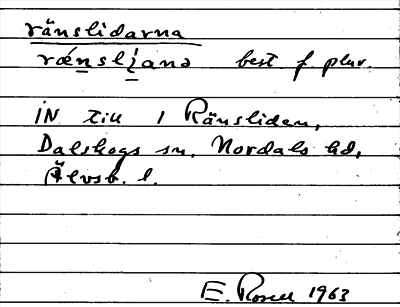 ränslidarna
rǽnsli̯anə best. f. plur.
IN till 1 Ränsliden,
Dalskogs sn, Nordals hd,
Älvsb. l.
E. Rosell 1963